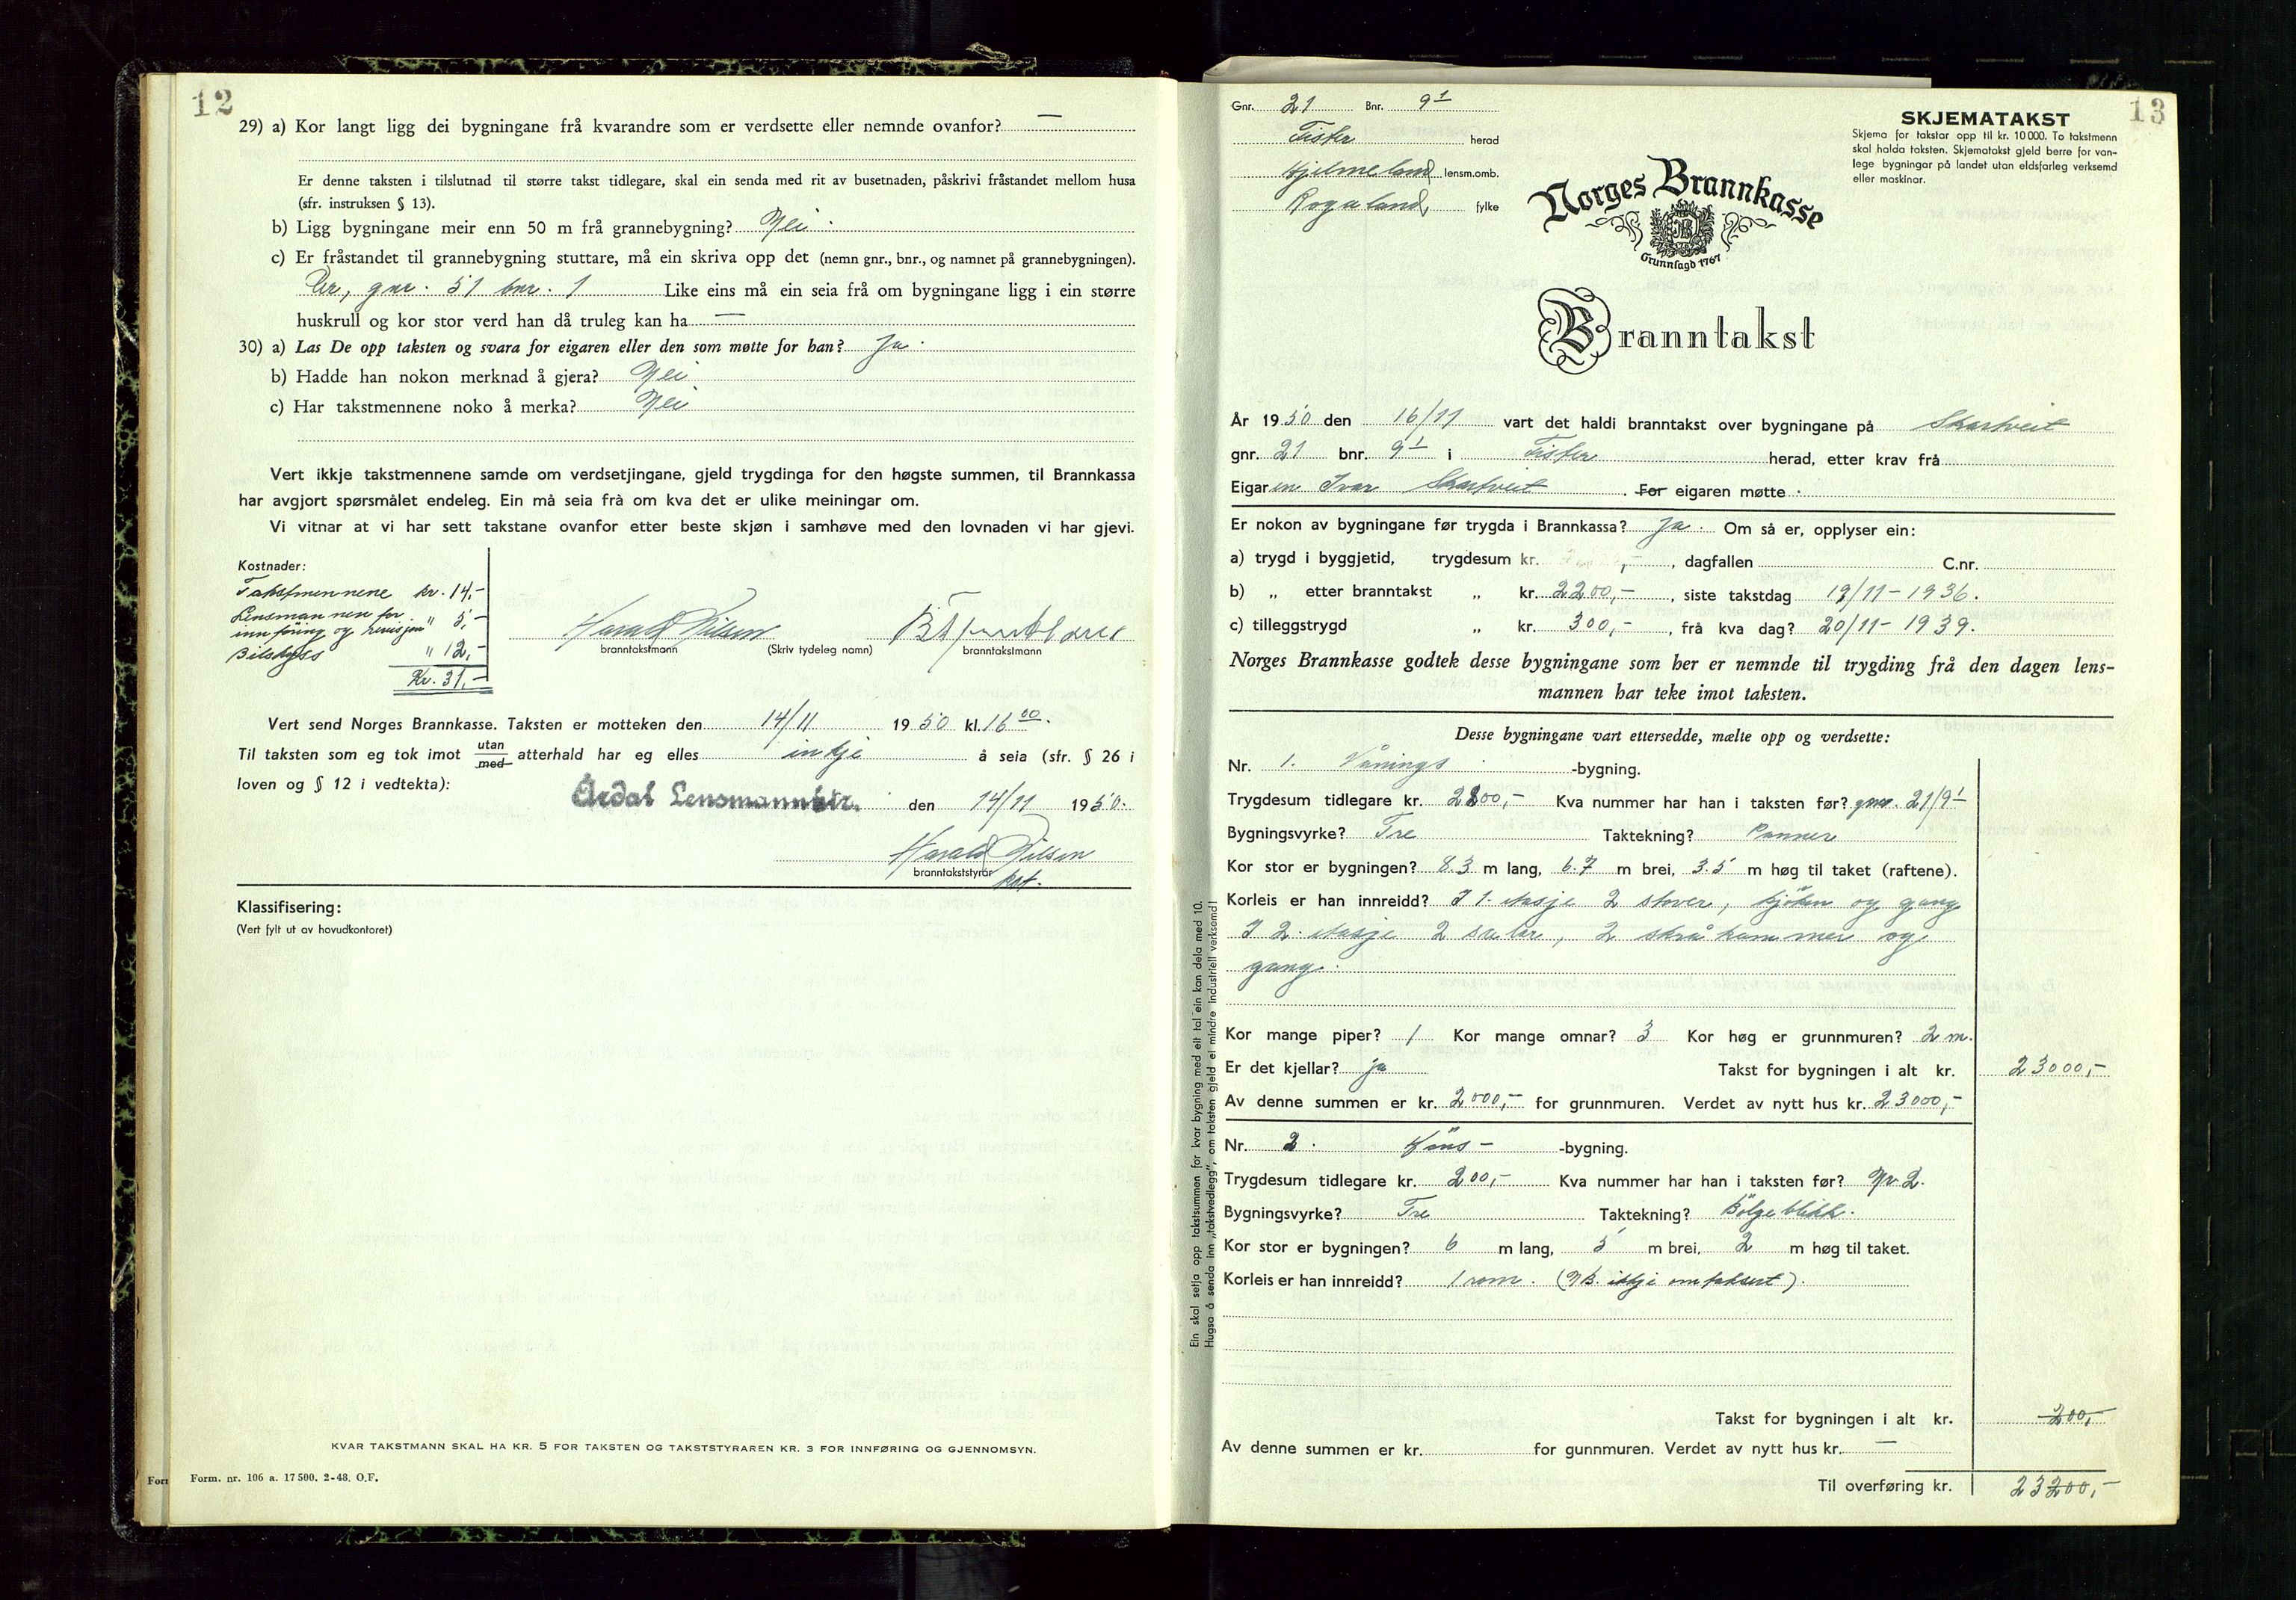 12
29) a) Kor langt ligg dei bygningane frå kvarandre som er verdsette eller nemnde ovanfor? —
Er denne taksten i tilslutnad til større takst tidlegare, skal ein senda med rit av busetnaden, påskrivi fråstandet mellom husa
(sfr. instruksen § 13).
b) Ligg bygningane meir enn 50 m frå grannebygning? Nei.
c) Er fråstandet til grannebygning stuttare, må ein skriva opp det (nemn gnr., bnr., og namnet på grannebygningen).
gnr. 51 bnr. 1 Like eins må ein seia frå om bygningane ligg i ein større
huskrull og kor stor verd han då truleg kan ha —
30) a) Las De opp taksten og svara for eigaren eller den som møtte for han? Ja.
b) Hadde han nokon merknad å gjera? Nei
c) Har takstmennene noko å merka? Nei
Vert ikkje takstmennene samde om verdsetjingane, gjeld trygdinga for den høgste summen, til Brannkassa
har avgjort spørsmålet endeleg. Ein må seia frå om kva det er ulike meiningar om.
Vi vitnar at vi har sett takstane ovanfor etter beste skjøn i samhøve med den lovnaden vi har gjevi.
Kostnader:
Takstmennene kr. 14,-
Lensmannen for
innføring og revisjon " 5,-
Bilskyss " 12,-
Kr. 31,-
Harald Nilsen
branntakstmann (Skriv tydeleg namn) branntakstmann
Vert send Norges Brannkasse. Taksten er motteken den 14/11 1950 kl. 16 00.
Til taksten som eg tok imot utan/med atterhald har eg elles inkje å seia (sfr. § 26 i
loven og § 12 i vedtekta):
Årdal Lensmannktr. den 14/11 1950.
Harald Nilsen
branntakststyrar
kst.
Klassifisering:
(Vert fylt ut av hovudkontoret)
KVAR TAKSTMANN SKAL HA KR. 5 FOR TAKSTEN OG TAKSTSTYRAREN KR. 3 FOR INNFØRING OG GJENNOMSYN.
Form. nr. 106 a. 17 500. 2-48. O.F.
13
Gnr. 21 Bnr. 9 1
Fister herad
Hjelmeland lensm.omb.
Rogaland, fylke
SKJEMATAKST
Skjema for takstar opp til kr. 10 000. To takstmenn
skal halda taksten. Skjematakst gjeld berre for van-
lege bygningar på landet utan eldsfarleg verksemd
eller maskinar.
Norges Brannkasse
Grunnlagd 1767
Branntakst
År 1950 den 16/11 vart det haldi branntakst over bygningane på Skartveit
gnr. 21 bnr. 9 1 i Fister herad, etter krav frå
Eigaren Ivar Skartveit. For eigaren møtte
Er nokon av bygningane før trygda i Brannkassa? Ja. Om så er, opplyser ein:
a) trygd i byggjetid, trygdesum kr. , dagfallen C.nr.
b) „ etter branntakst „ kr. 2200,-, siste takstdag 19/11-1936.
c) tilleggstrygd „ kr. 300,-, frå kva dag? 20/11-1939.
Norges Brannkasse godtek desse bygningane som her er nemnde til trygding frå den dagen lens-
mannen har teke imot taksten.
Desse bygningane vart ettersedde, mælte opp og verdsette:
Nr. 1. Vånings -bygning.
Trygdesum tidlegare kr. 2200,- Kva nummer har han i taksten før? gnr. 21/9 1
Bygningsvyrke? Tre Taktekning? Panner
Kor stor er bygningen? 8.3 m lang, 6.7 m brei, 3.5 m høg til taket (raftene).
Korleis er han innreidd? I 1. etasje 2 stover, kjöken og gang
I 2. etasje 2 salar, 2 skråkammer og
gang.
Kor mange piper? 1 Kor mange omnar? 3 Kor høg er grunnmuren? 2 m.
Er det kjellar? ja Takst for bygningen i alt kr. 23000,-
Av denne summen er kr. 2000,- for grunnmuren. Verdet av nytt hus kr. 23000,-
Nr. 2. Höns- -bygning.
Trygdesum tidlegare kr. 200,- Kva nummer har han i taksten før? Nr 2.
Bygningsvyrke? Tre Taktekning? Bölgeblikk.
Kor stor er bygningen? 6 m lang, 5 m brei, 2 m høg til taket.
Korleis er han innreidd? 1 rom. (NB. ikkje omtaksert).
Takst for bygningen i alt kr. 200,-
Av denne summen er kr. for gunnmuren. Verdet av nytt hus kr. —
Til overføring kr. 23200,-
Ein skal setja opp takstsummen for kvar bygning med eit tal ein kan dela med 10.
Hugsa å senda inn „takstvedlegg", om taksten gjeld ei mindre industriell verksemd!